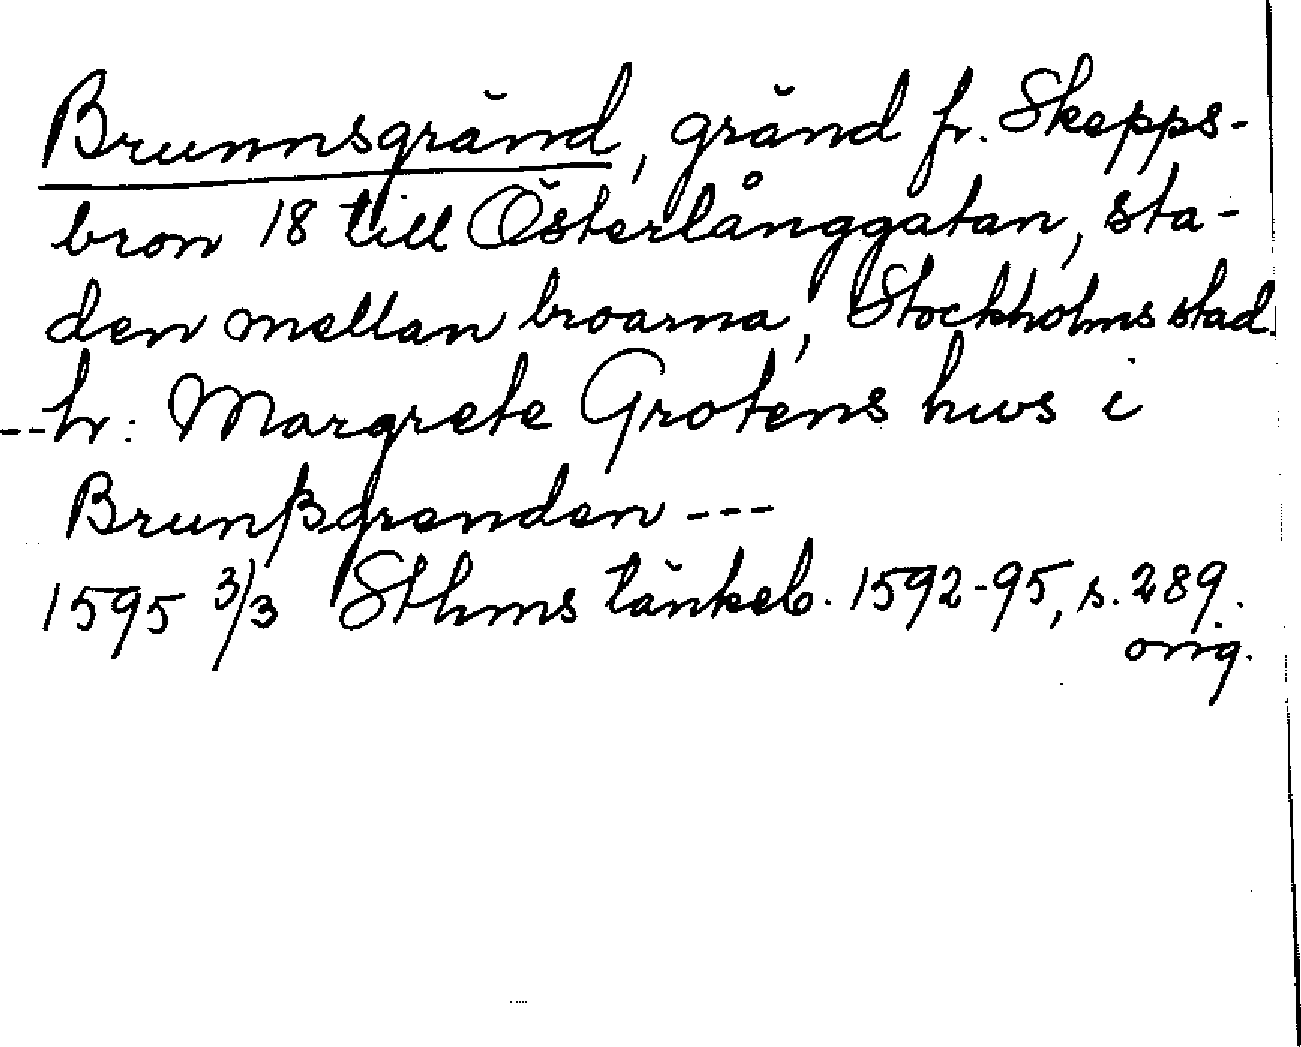 Brunnsgränd, gränd fr. Skepps-
bron 18 till Österlånggatan, sta-
den mellan broarna, Stockholms stad.
--hr: Margrete Grotens hws i
Brunßgrenden ---
1595 3/3 Sthms tänkeb. 1592-95, s. 289.
orig.